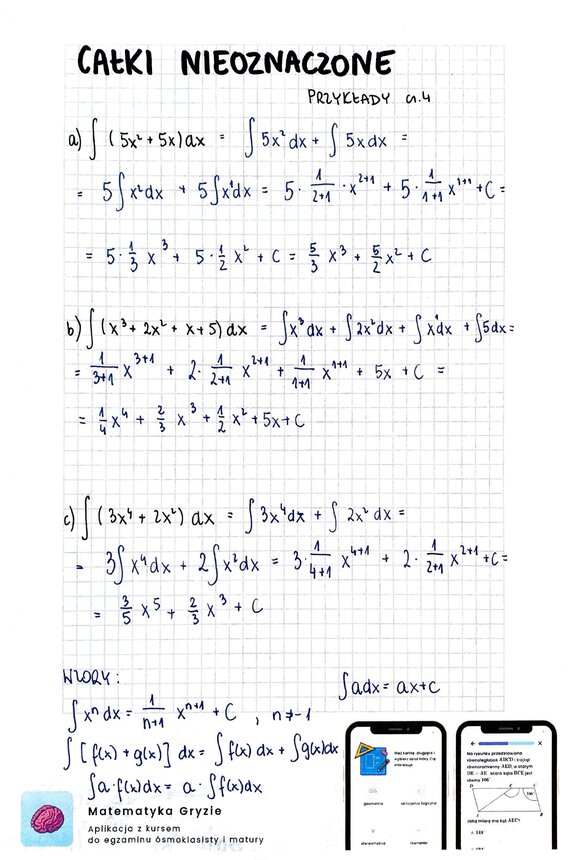 CAŁKI NIEOZNACZONE
PRZYKŁADY cz.4
a) ∫(5x² + 5x)dx = ∫5x²dx + ∫5xdx =
= 5∫x²dx + 5∫x¹dx = 5 · 1/(2+1) · x²⁺¹ + 5 · 1/(1+1) x¹⁺¹ + C =
= 5 · 1/3 x³ + 5 · 1/2 x² + C = 5/3 x³ + 5/2 x² + C
b) ∫(x³ + 2x² + x + 5)dx = ∫x³dx + ∫2x²dx + ∫x¹dx + ∫5dx =
= 1/(3+1) x³⁺¹ + 2 · 1/(2+1) x²⁺¹ + 1/(1+1) x¹⁺¹ + 5x + C =
= 1/4 x⁴ + 2/3 x³ + 1/2 x² + 5x + C
c) ∫(3x⁴ + 2x²)dx = ∫3x⁴dx + ∫2x²dx =
= 3∫x⁴dx + 2∫x²dx = 3 · 1/(4+1) x⁴⁺¹ + 2 · 1/(2+1) x²⁺¹ + C =
= 3/5 x⁵ + 2/3 x³ + C
WZORY:
∫adx = ax+C
∫xⁿdx = 1/(n+1) xⁿ⁺¹ + C , n≠-1
∫[f(x) + g(x)]dx = ∫f(x)dx + ∫g(x)dx
∫a·f(x)dx = a·∫f(x)dx
Matematyka Gryzie
Aplikacja z kursem
do egzaminu ósmoklasisty i matury
geometria
stereometria
równania
Na rysunku przedstawiono
równoległobok ABCD i trójkąt
równoramienny AED, w którym
DE = AE. Miara kąta BCE jest
równa 106°
Jaką miarę ma kąt AEC?